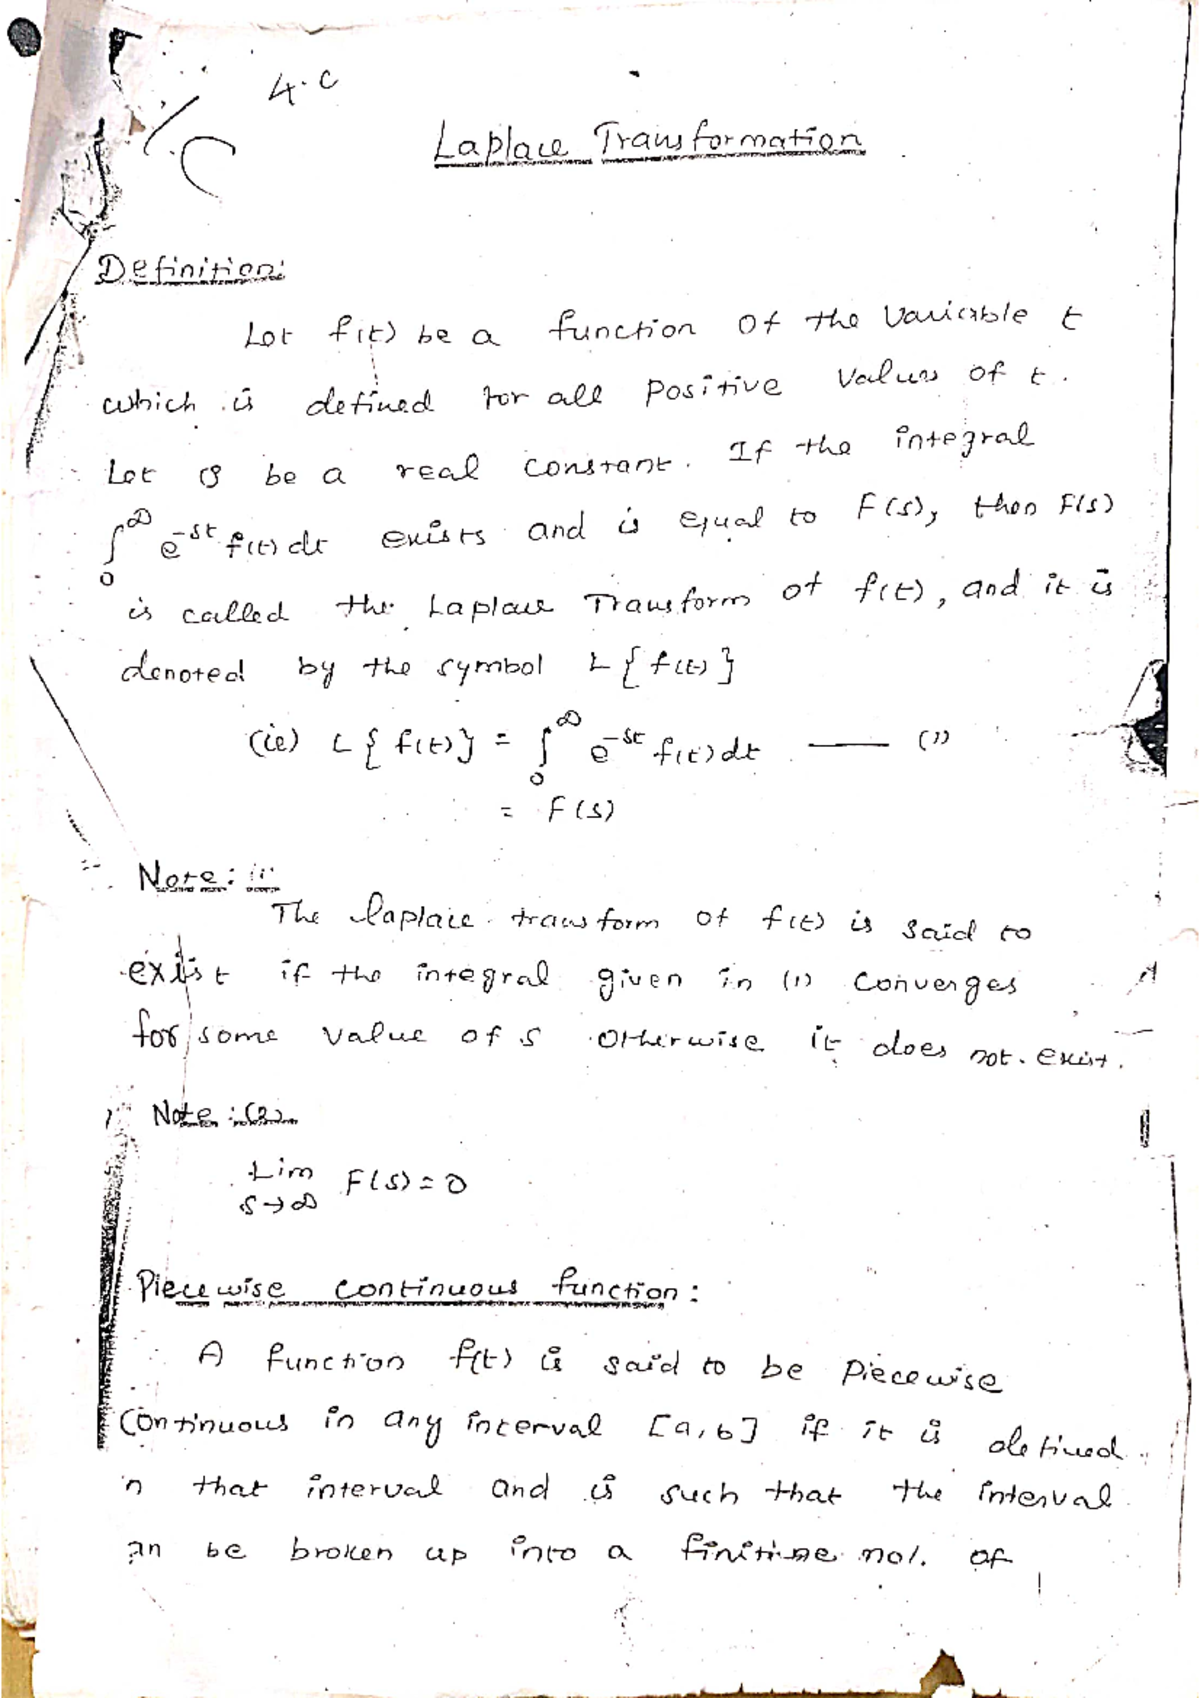 4.C
Laplace Transformation
Definition:
Let f(t) be a function of the variable t
which is defined for all positive values of t.
Let s be a real constant. If the integral
∫₀^∞ e^{-st} f(t) dt exists and is equal to F(s), then F(s)
is called the Laplace Transform of f(t), and it is
denoted by the symbol L{f(t)}
(ie) L{f(t)} = ∫₀^∞ e^{-st} f(t) dt —— (1)
= F(s)
Note:
The laplace transform of f(t) is said to
exist if the integral given in (1) converges
for some value of s otherwise it does not exist.
Note :(2)
Lim s→∞ F(s) = 0
Piecewise continuous function:
A function f(t) is said to be piecewise
continuous in any interval [a,b] if it is defined
n that interval and is such that the interval
an be broken up into a no/. of